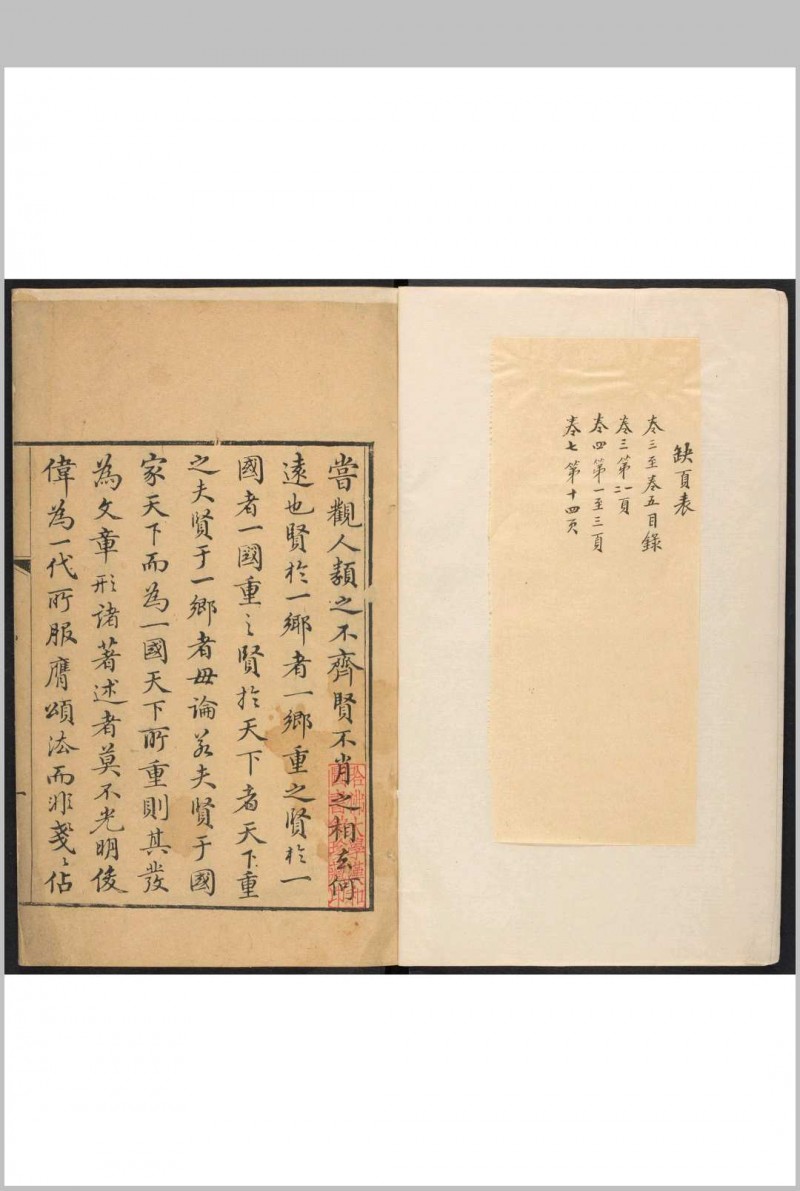 缺頁表
卷三至卷五目錄
卷三第一二頁
卷四第一至三頁
卷七第十四頁
嘗觀人類之不齊賢不肖之相去何
遠也賢於一鄉者一鄉重之賢於一
國者一國重之賢於天下者天下重
之夫賢于一鄉者毋論若夫賢于國
家天下而為一國天下所重則其發
為文章形諸著述者莫不光明俊
偉為一代所服膺頌法而非戔〻佔
哈佛大學漢和
圖書館珍藏印